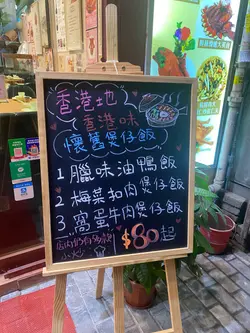 香港地
香港味
懷舊煲仔飯
1.臘味油鴨飯
2.梅菜扣肉煲仔飯
3.窩蛋牛肉煲仔飯
$80起